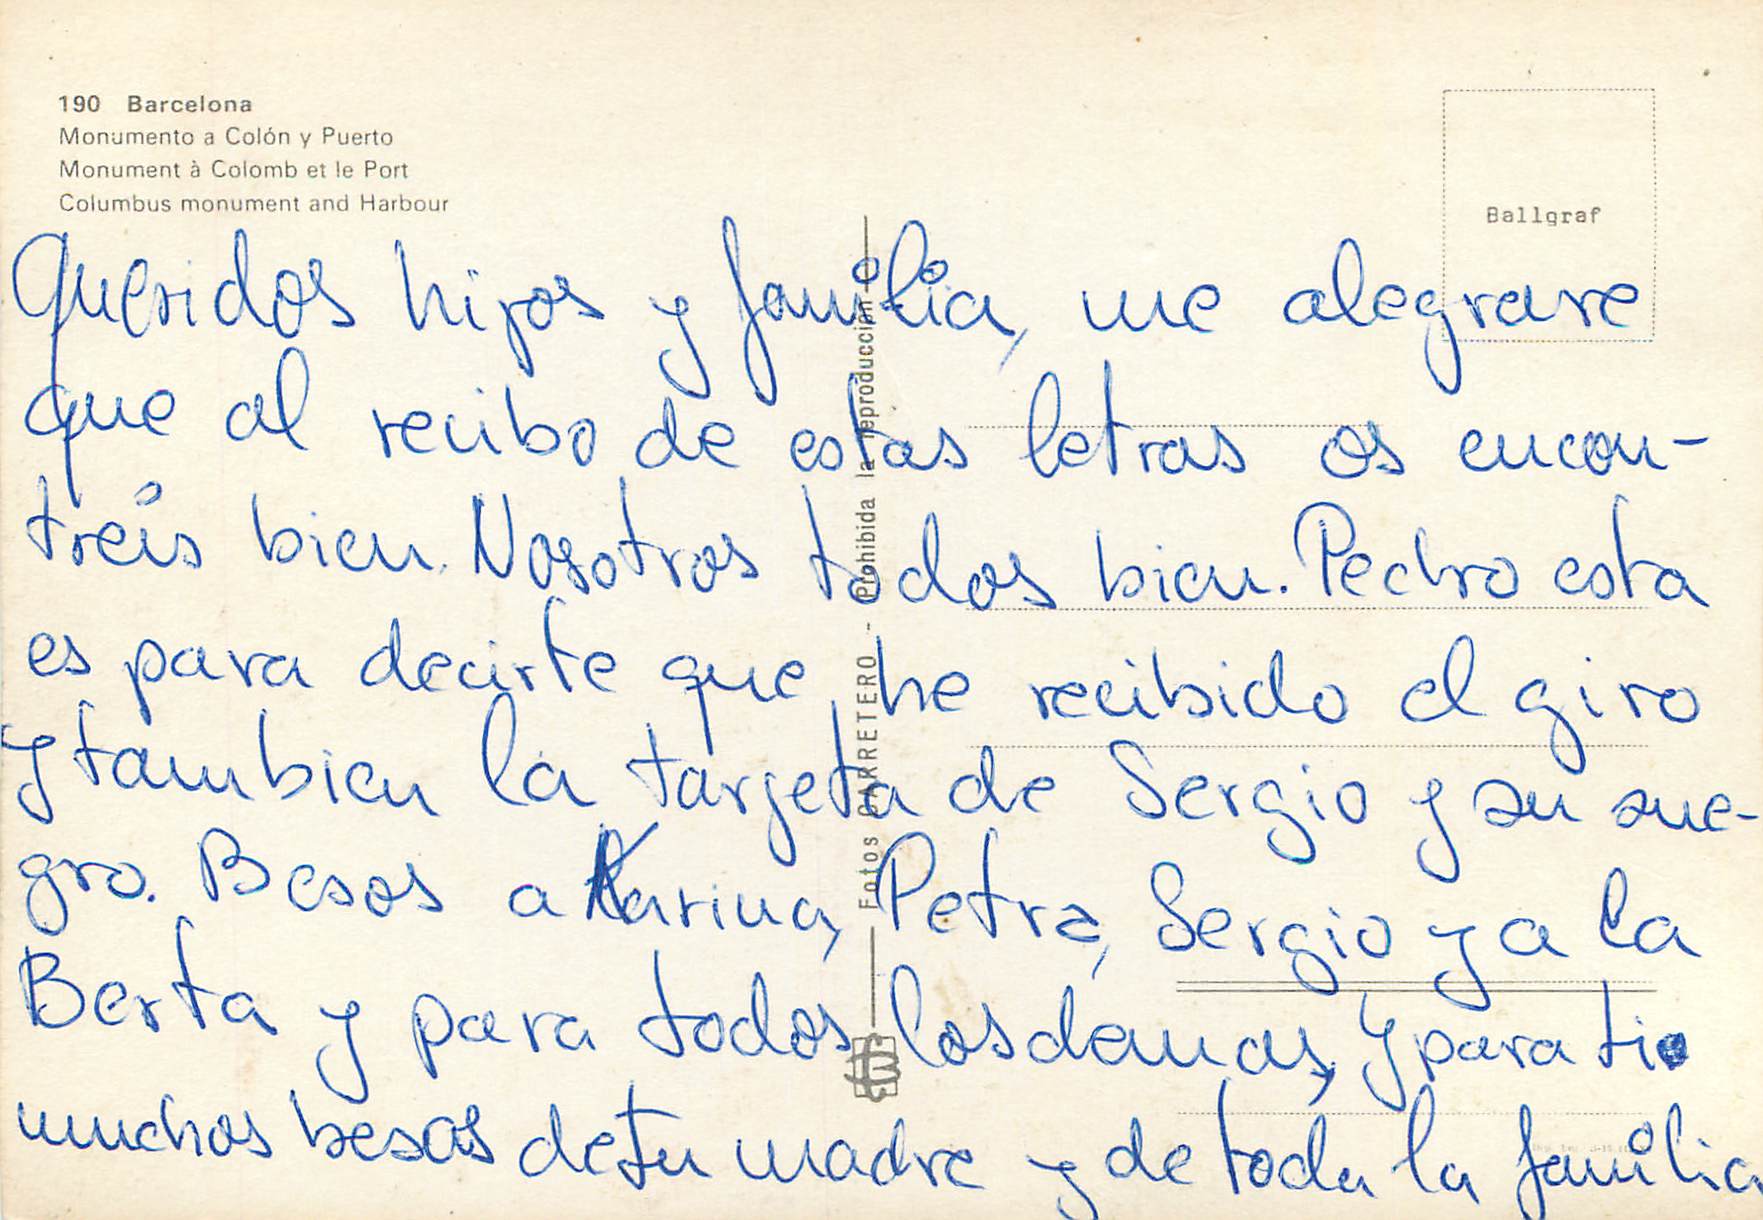 190 Barcelona
Monumento a Colón y Puerto
Monument à Colomb et le Port
Columbus monument and Harbour
Ballgraf
Queridos hijos y familia, me alegrare
que al recibo de estas letras os encon-
treís bien. Nosotros todos bien. Pedro esta
es para decirte que he recibido el giro
y tambien la tarjeta de Sergio y su sue-
gro. Besos a Karina, Petra, Sergio y a la
Berta y para todos los demas, y para ti
muchos besos de tu madre y de toda la familia
Fotos CARRETERO - Prohibida la reproducción